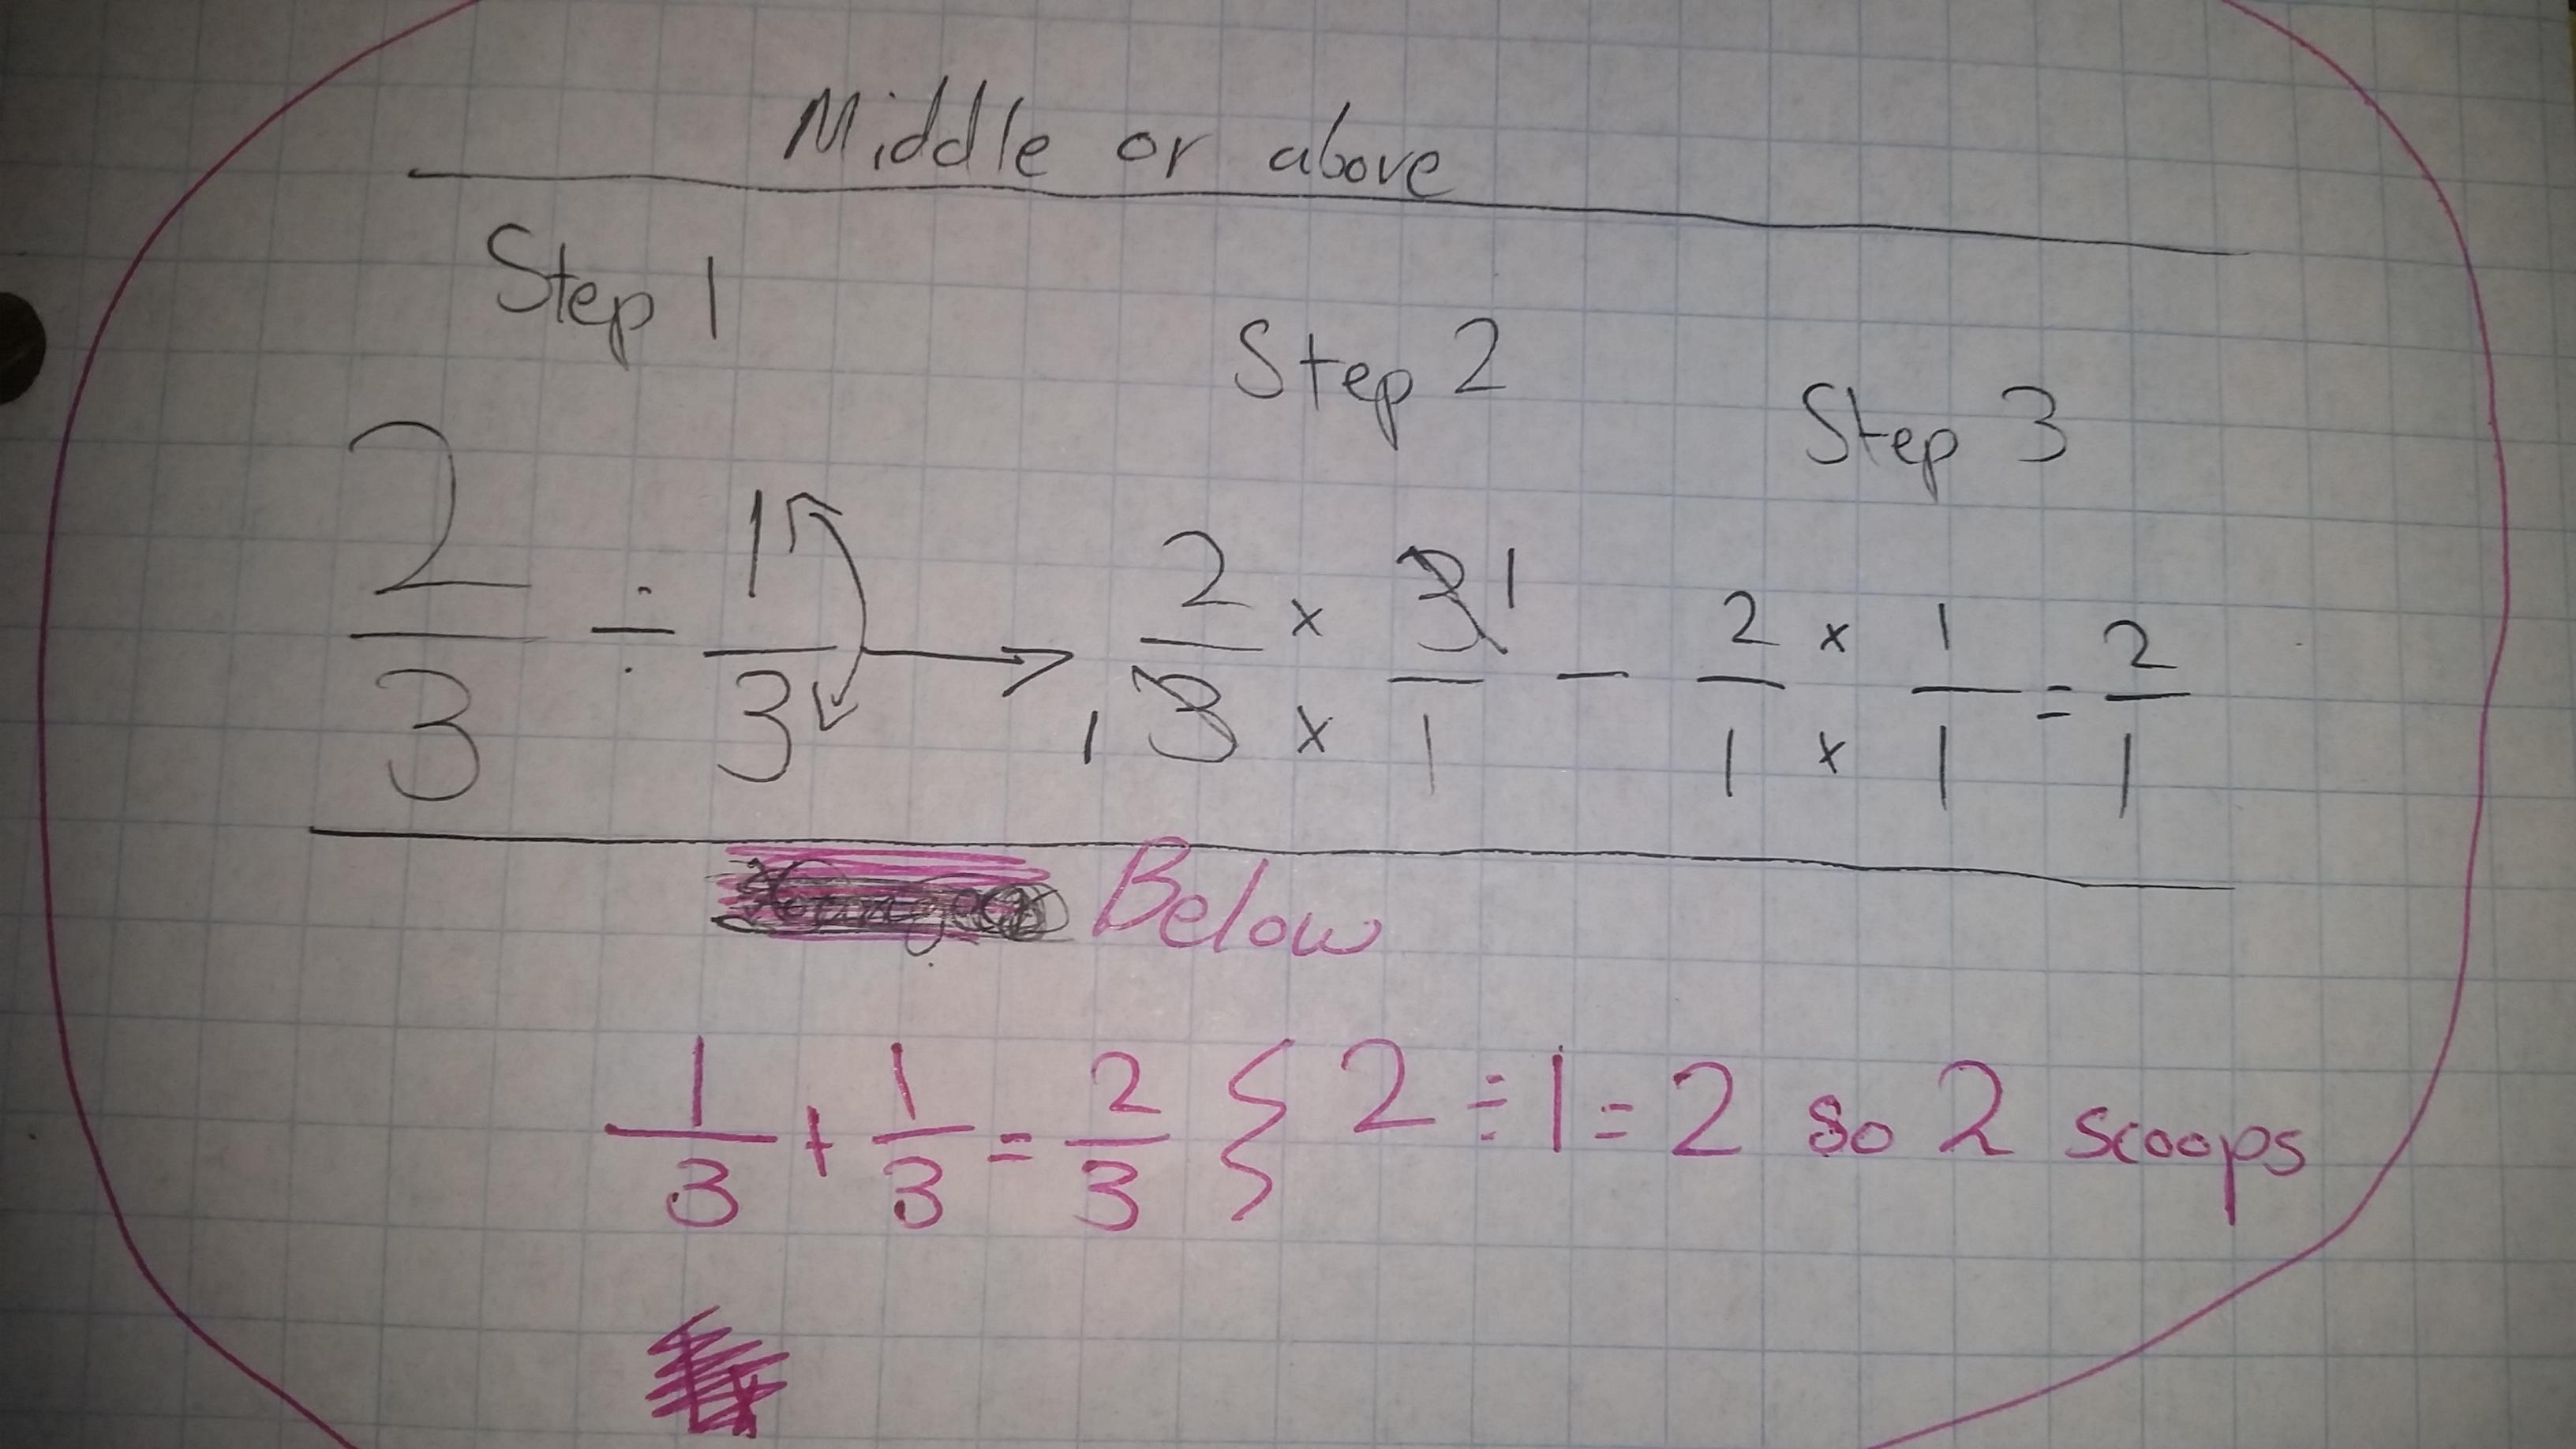 Middle or above
Step 1 Step 2 Step 3
2/3 ÷ 1/3 → 2/3 1 × 3/1 1 — 2/1 × 1/1 = 2/1
Below
1/3 + 1/3 = 2/3 { 2 ÷ 1 = 2 so 2 scoops